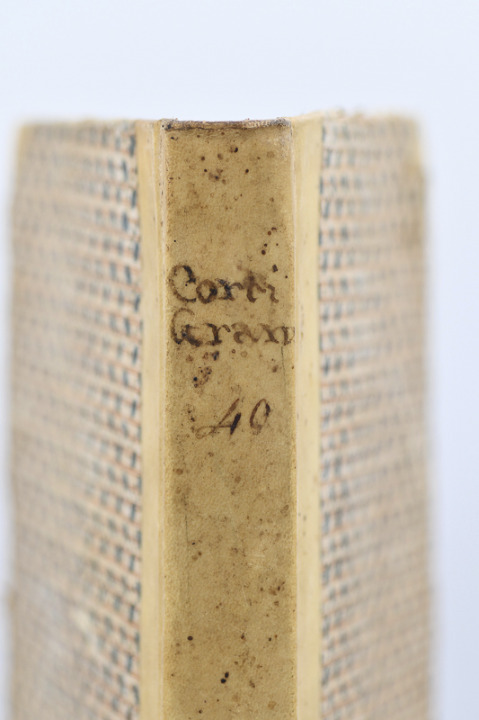 Corti
Gram
40